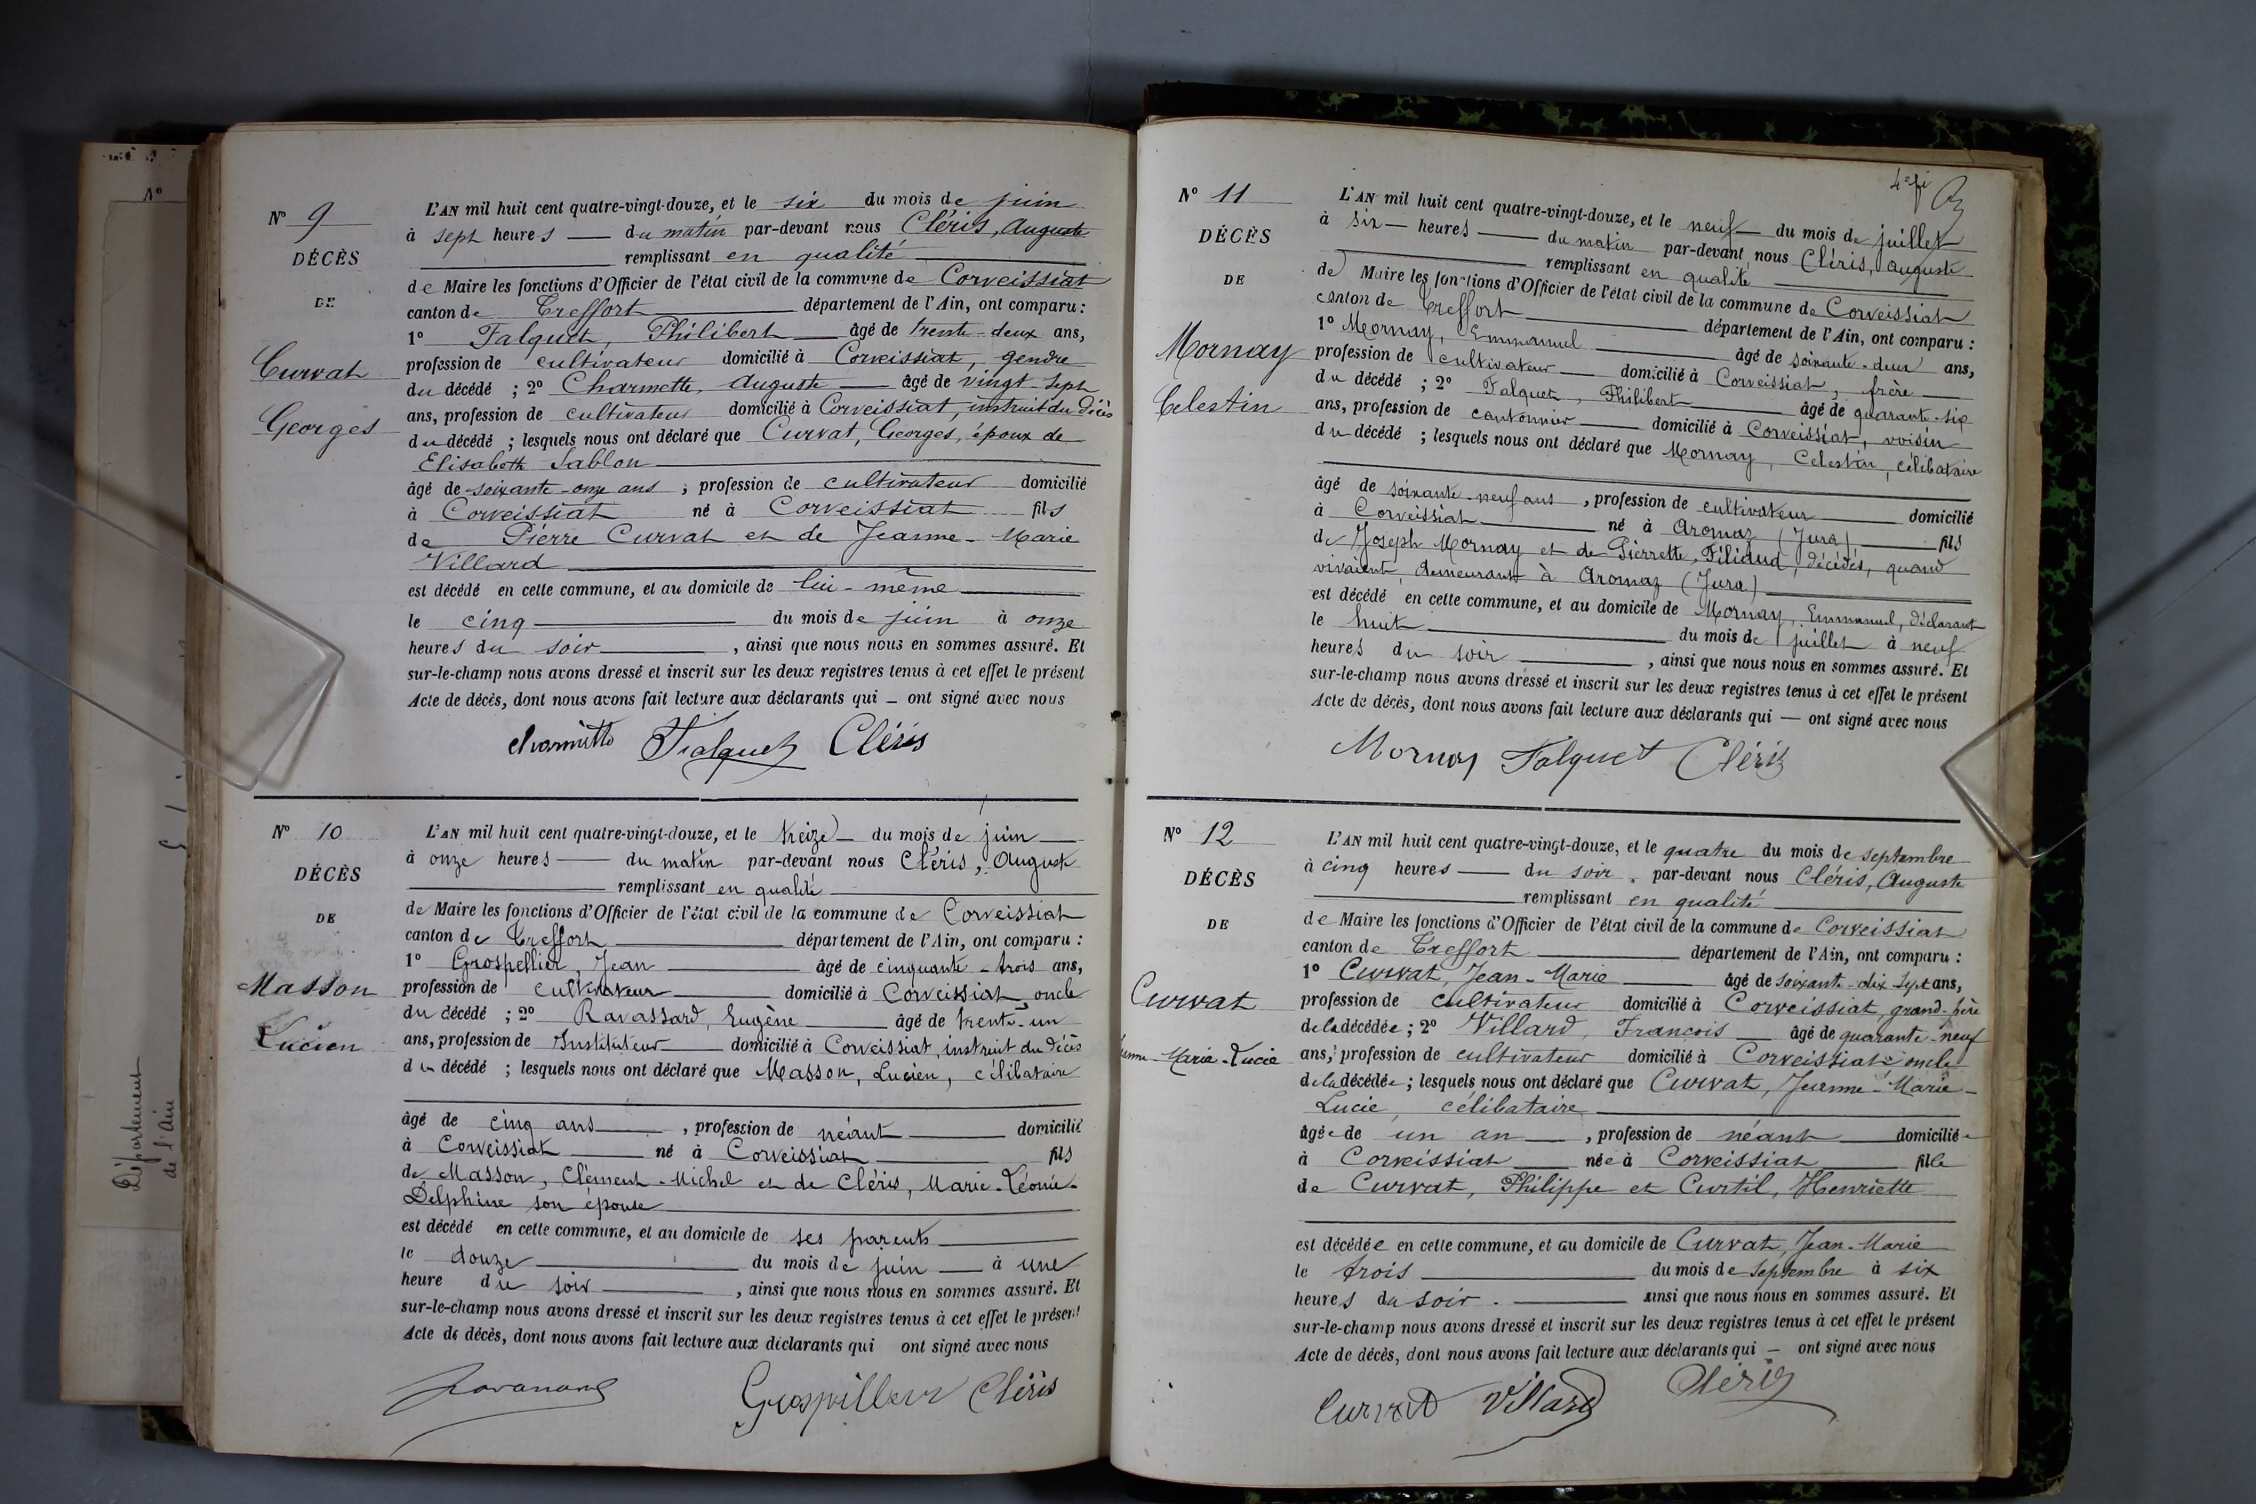 Nº 9
DÉCÈS
DE
Curvat
Georges
L'AN mil huit cent quatre-vingt-douze, et le six du mois de juin
à sept heures — du matin par-devant nous Cléris, Auguste
remplissant en qualité
de Maire les fonctions d'Officier de l'état civil de la commune de Corveissiat
canton de Treffort département de l'Ain, ont comparu :
1º Falquet, Philibert âgé de trente-deux ans,
profession de cultivateur domicilié à Corveissiat, gendre
du décédé ; 2º Charmette, Auguste âgé de vingt-sept
ans, profession de cultivateur domicilié à Corveissiat, instruit du décès
du décédé ; lesquels nous ont déclaré que Curvat, Georges, époux de
Elisabeth Sablon
âgé de soixante-onze ans ; profession de cultivateur domicilié
à Corveissiat né à Corveissiat fils
de Pierre Curvat et de Jeanne-Marie
Villard
est décédé en cette commune, et au domicile de lui-même
le cinq du mois de juin à onze
heures du soir , ainsi que nous nous en sommes assuré. Et
sur-le-champ nous avons dressé et inscrit sur les deux registres tenus à cet effet le présent
Acte de décès, dont nous avons fait lecture aux déclarants qui — ont signé avec nous
Charmette Falquet Cléris
Nº 10
DÉCÈS
DE
Masson
Lucien
L'AN mil huit cent quatre-vingt-douze, et le treize du mois de juin
à onze heures — du matin par-devant nous Cléris, Auguste
remplissant en qualité
de Maire les fonctions d'Officier de l'état civil de la commune de Corveissiat
canton de Treffort département de l'Ain, ont comparu :
1º Grospellier, Jean âgé de cinquante-trois ans,
profession de cultivateur domicilié à Corveissiat, oncle
du décédé ; 2º Ravassard, Eugène âgé de trente-un
ans, profession de Instituteur domicilié à Corveissiat, instruit du décès
du décédé ; lesquels nous ont déclaré que Masson, Lucien, célibataire
âgé de cinq ans , profession de néant domicilié
à Corveissiat né à Corveissiat fils
de Masson, Clément-Michel et de Cléris, Marie-Léonie-
Delphine son épouse
est décédé en cette commune, et au domicile de ses parents
le douze du mois de juin à une
heure du soir , ainsi que nous nous en sommes assuré. Et
sur-le-champ nous avons dressé et inscrit sur les deux registres tenus à cet effet le présent
Acte de décès, dont nous avons fait lecture aux déclarants qui ont signé avec nous
Grospellier Cléris
Nº
Département
de l'Ain
Nº 11
DÉCÈS
DE
Mornay
Celestin
L'AN mil huit cent quatre-vingt-douze, et le neuf du mois de juillet
à six — heures — du matin par-devant nous Cléris, Auguste
remplissant en qualité
de Maire les fonctions d'Officier de l'état civil de la commune de Corveissiat
canton de Treffort département de l'Ain, ont comparu :
1º Mornay, Emmanuel âgé de soixante-deux ans,
profession de cultivateur domicilié à Corveissiat, frère
du décédé ; 2º Falquet, Philibert âgé de quarante-six
ans, profession de cantonnier domicilié à Corveissiat, voisin
du décédé ; lesquels nous ont déclaré que Mornay, Celestin, célibataire
âgé de soixante-neuf ans , profession de cultivateur domicilié
à Corveissiat né à Aromaz (Jura) fils
de Joseph Mornay et de Pierrette, décédés, quand
vivaient, demeurant à Aromaz (Jura)
est décédé en cette commune, et au domicile de Mornay, Emmanuel, déclarant
le huit du mois de juillet à neuf
heures du soir , ainsi que nous nous en sommes assuré. Et
sur-le-champ nous avons dressé et inscrit sur les deux registres tenus à cet effet le présent
Acte de décès, dont nous avons fait lecture aux déclarants qui — ont signé avec nous
Mornay Falquet Cléris
Nº 12
DÉCÈS
DE
Curvat
Marie-Lucie
L'AN mil huit cent quatre-vingt-douze, et le quatre du mois de septembre
à cinq heures — du soir . par-devant nous Cléris, Auguste
remplissant en qualité
de Maire les fonctions d'Officier de l'état civil de la commune de Corveissiat
canton de Treffort département de l'Ain, ont comparu :
1º Curvat, Jean-Marie âgé de soixante-dix sept ans,
profession de cultivateur domicilié à Corveissiat, grand-père
de la décédée ; 2º Villard, François âgé de quarante-neuf
ans, profession de cultivateur domicilié à Corveissiat oncle
de la décédée ; lesquels nous ont déclaré que Curvat, Jeanne-Marie-
Lucie, célibataire
âgée de un an , profession de néant domiciliée
à Corveissiat née à Corveissiat fille
de Curvat, Philippe et Curtil, Henriette
est décédée en cette commune, et au domicile de Curvat, Jean-Marie
le trois du mois de septembre à six
heures du soir . ainsi que nous nous en sommes assuré. Et
sur-le-champ nous avons dressé et inscrit sur les deux registres tenus à cet effet le présent
Acte de décès, dont nous avons fait lecture aux déclarants qui — ont signé avec nous
Curvat Villard Cléris